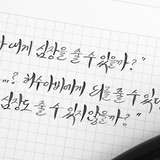 내게 심장을 줄 수 있을까?"
...? 허수아비에게 뇌를 줄 수 있
심장도 줄 수 있지 않을까?"